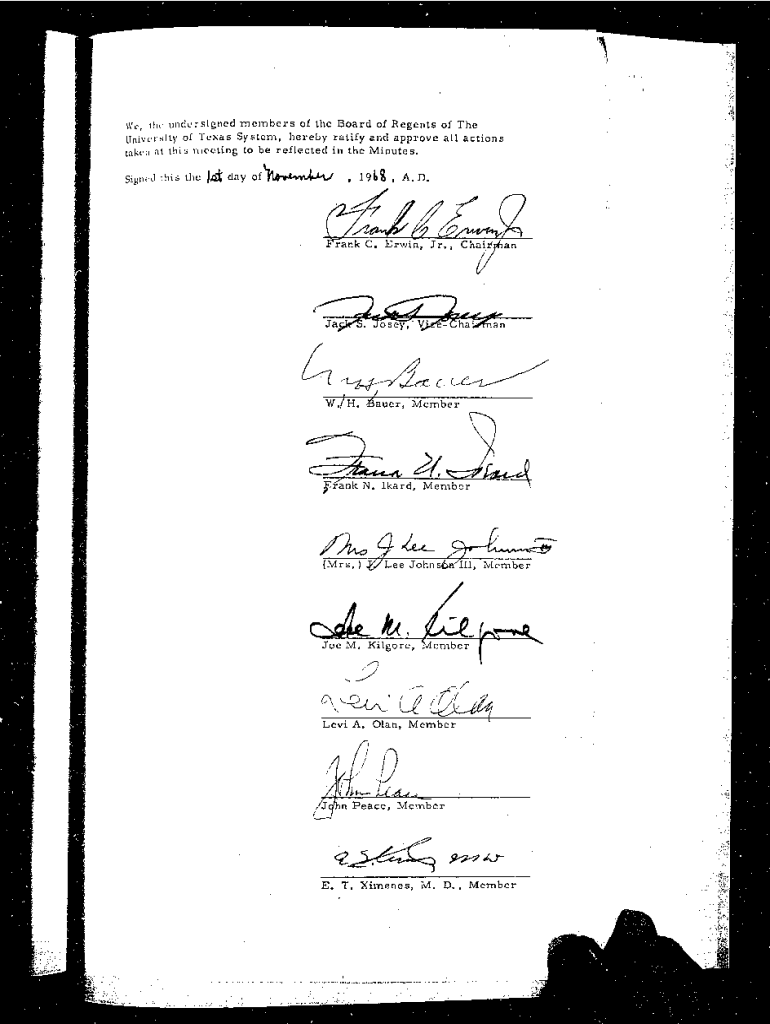 We, the undersigned members of the Board of Regents of The
University of Texas System, hereby ratify and approve all actions
taken at this meeting to be reflected in the Minutes.
Signed this the 1st day of November , 1968 , A. D.
Frank C Erwin Jr
Frank C. Erwin, Jr., Chairman
Jack S. Josey, Vice-Chairman
Bauer
W. H. Bauer, Member
Frank N. Ikard
Frank N. Ikard, Member
Mrs J Lee Johnson III
(Mrs.) J. Lee Johnson III, Member
Joe M. Kilgore
Joe M. Kilgore, Member
Levi A Olan
Levi A. Olan, Member
John Peace
John Peace, Member
E. T. Ximenes, M. D., Member